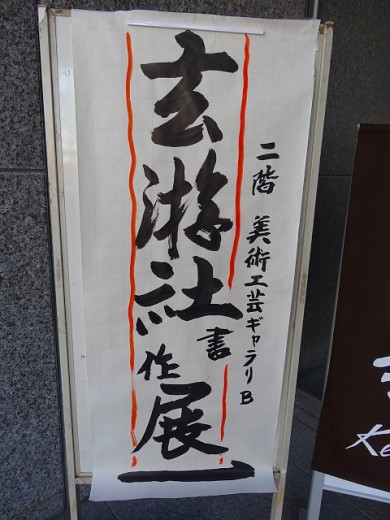 玄游社書作展
二階 美術工芸ギャラリB
Ke